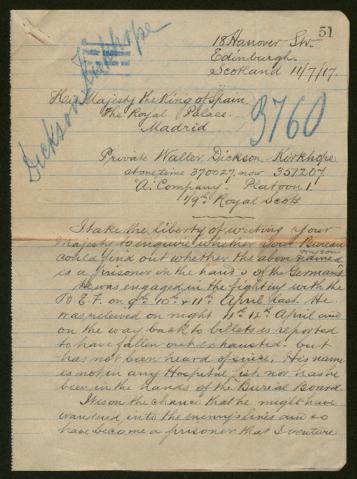 51
18 Hanover St.
Edinburgh.
Scotland 11/7/17.
Dickson Kirkhope
His Majesty the King of Spain
The Royal Palace.
Madrid
3760
Private Walter Dickson Kirkhope
at one time 370027. now 351207
"A" Company. Platoon 1.
1/9th Royal Scots
I take the liberty of writing your
Majesty to enquire whether your Bureau
could find out whether the above named
is a prisoner in the hands of the Germans.
He was engaged in the fighting with the
B.E.F. on 9th 10th & 11th April last. He
was relieved on night 11th 12th April and
on the way back to billets is reported
to have fallen out exhausted. but
has not been heard of since. His name
is not in any Hospital list nor has he
been in the hands of the Burial Board
It is on the chance that he might have
wandered into the enemy's lines and so
have become a prisoner that I venture